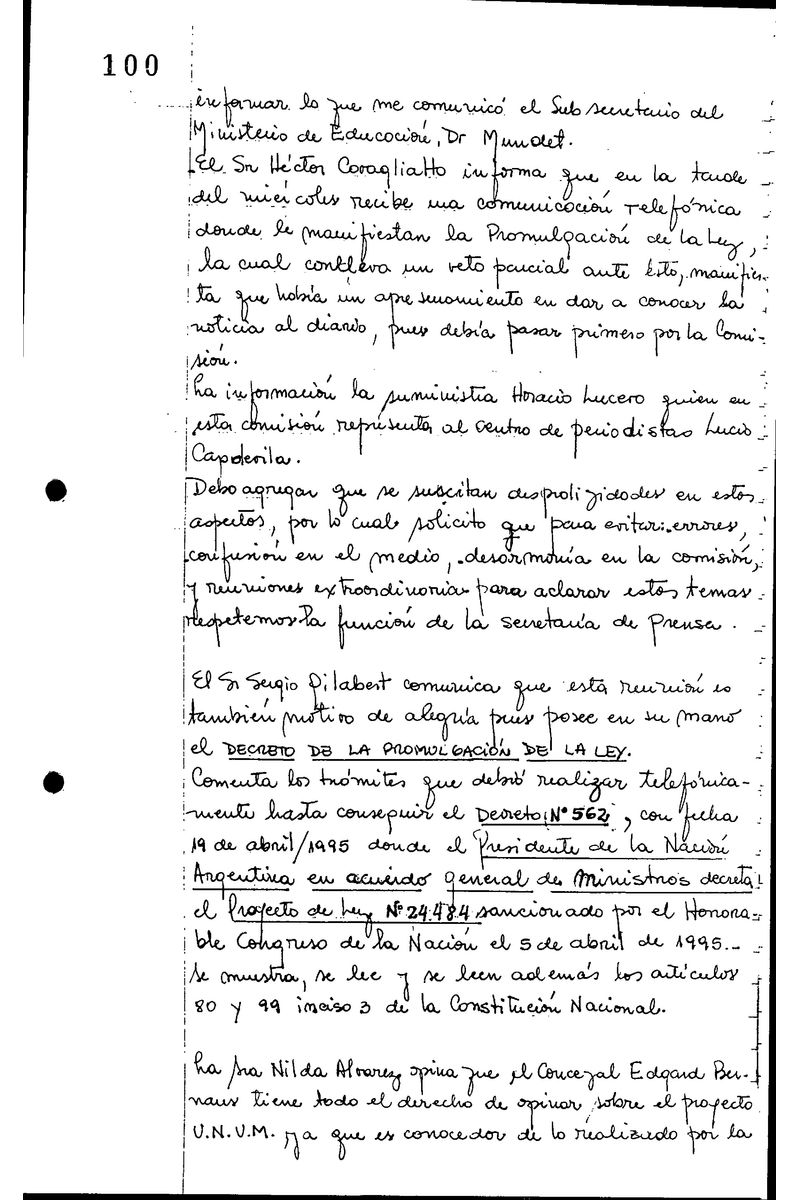 100
informar lo que me comunicó el Subsecretario del
Ministerio de Educación, Dr Mundet.
El Sr Héctor Covagliatto informa que en la tarde
del miércoles recibe una comunicación telefónica
donde le manifiestan la Promulgación de la Ley,
la cual conlleva un veto parcial ante ésto, manifies-
ta que había un apresuramiento en dar a conocer la
noticia al diario, pues debía pasar primero por la Comi-
sión.
La información la suministra Horacio Lucero quien en
esta comisión representa al centro de periodistas Lucio
Capdevila.
Debo agregar que se suscitan desprolijidades en estos
aspectos, por lo cual solicito que para evitar errores,
confusión en el medio, desarmonía en la comisión,
y reuniones extraordinarias para aclarar estos temas
respetemos la función de la secretaría de Prensa.
El Sr Sergio Gilabert comunica que esta reunión es
también motivo de alegría pues posee en su mano
el DECRETO DE LA PROMULGACIÓN DE LA LEY.
Comenta los trámites que debió realizar telefónica-
mente hasta conseguir el Decreto Nº 562, con fecha
19 de abril/1995 donde el Presidente de la Nación
Argentina en acuerdo general de Ministros decreta
el Proyecto de Ley Nº 24.484 sancionado por el Honora-
ble Congreso de la Nación el 5 de abril de 1995.-
Se muestra, se lee y se leen además los artículos
80 y 99 inciso 3 de la Constitución Nacional.
La Sra Nilda Alvarez opina que el Concejal Edgard Ber-
naus tiene todo el derecho de opinar sobre el proyecto
U.N.V.M. ya que es conocedor de lo realizado por la